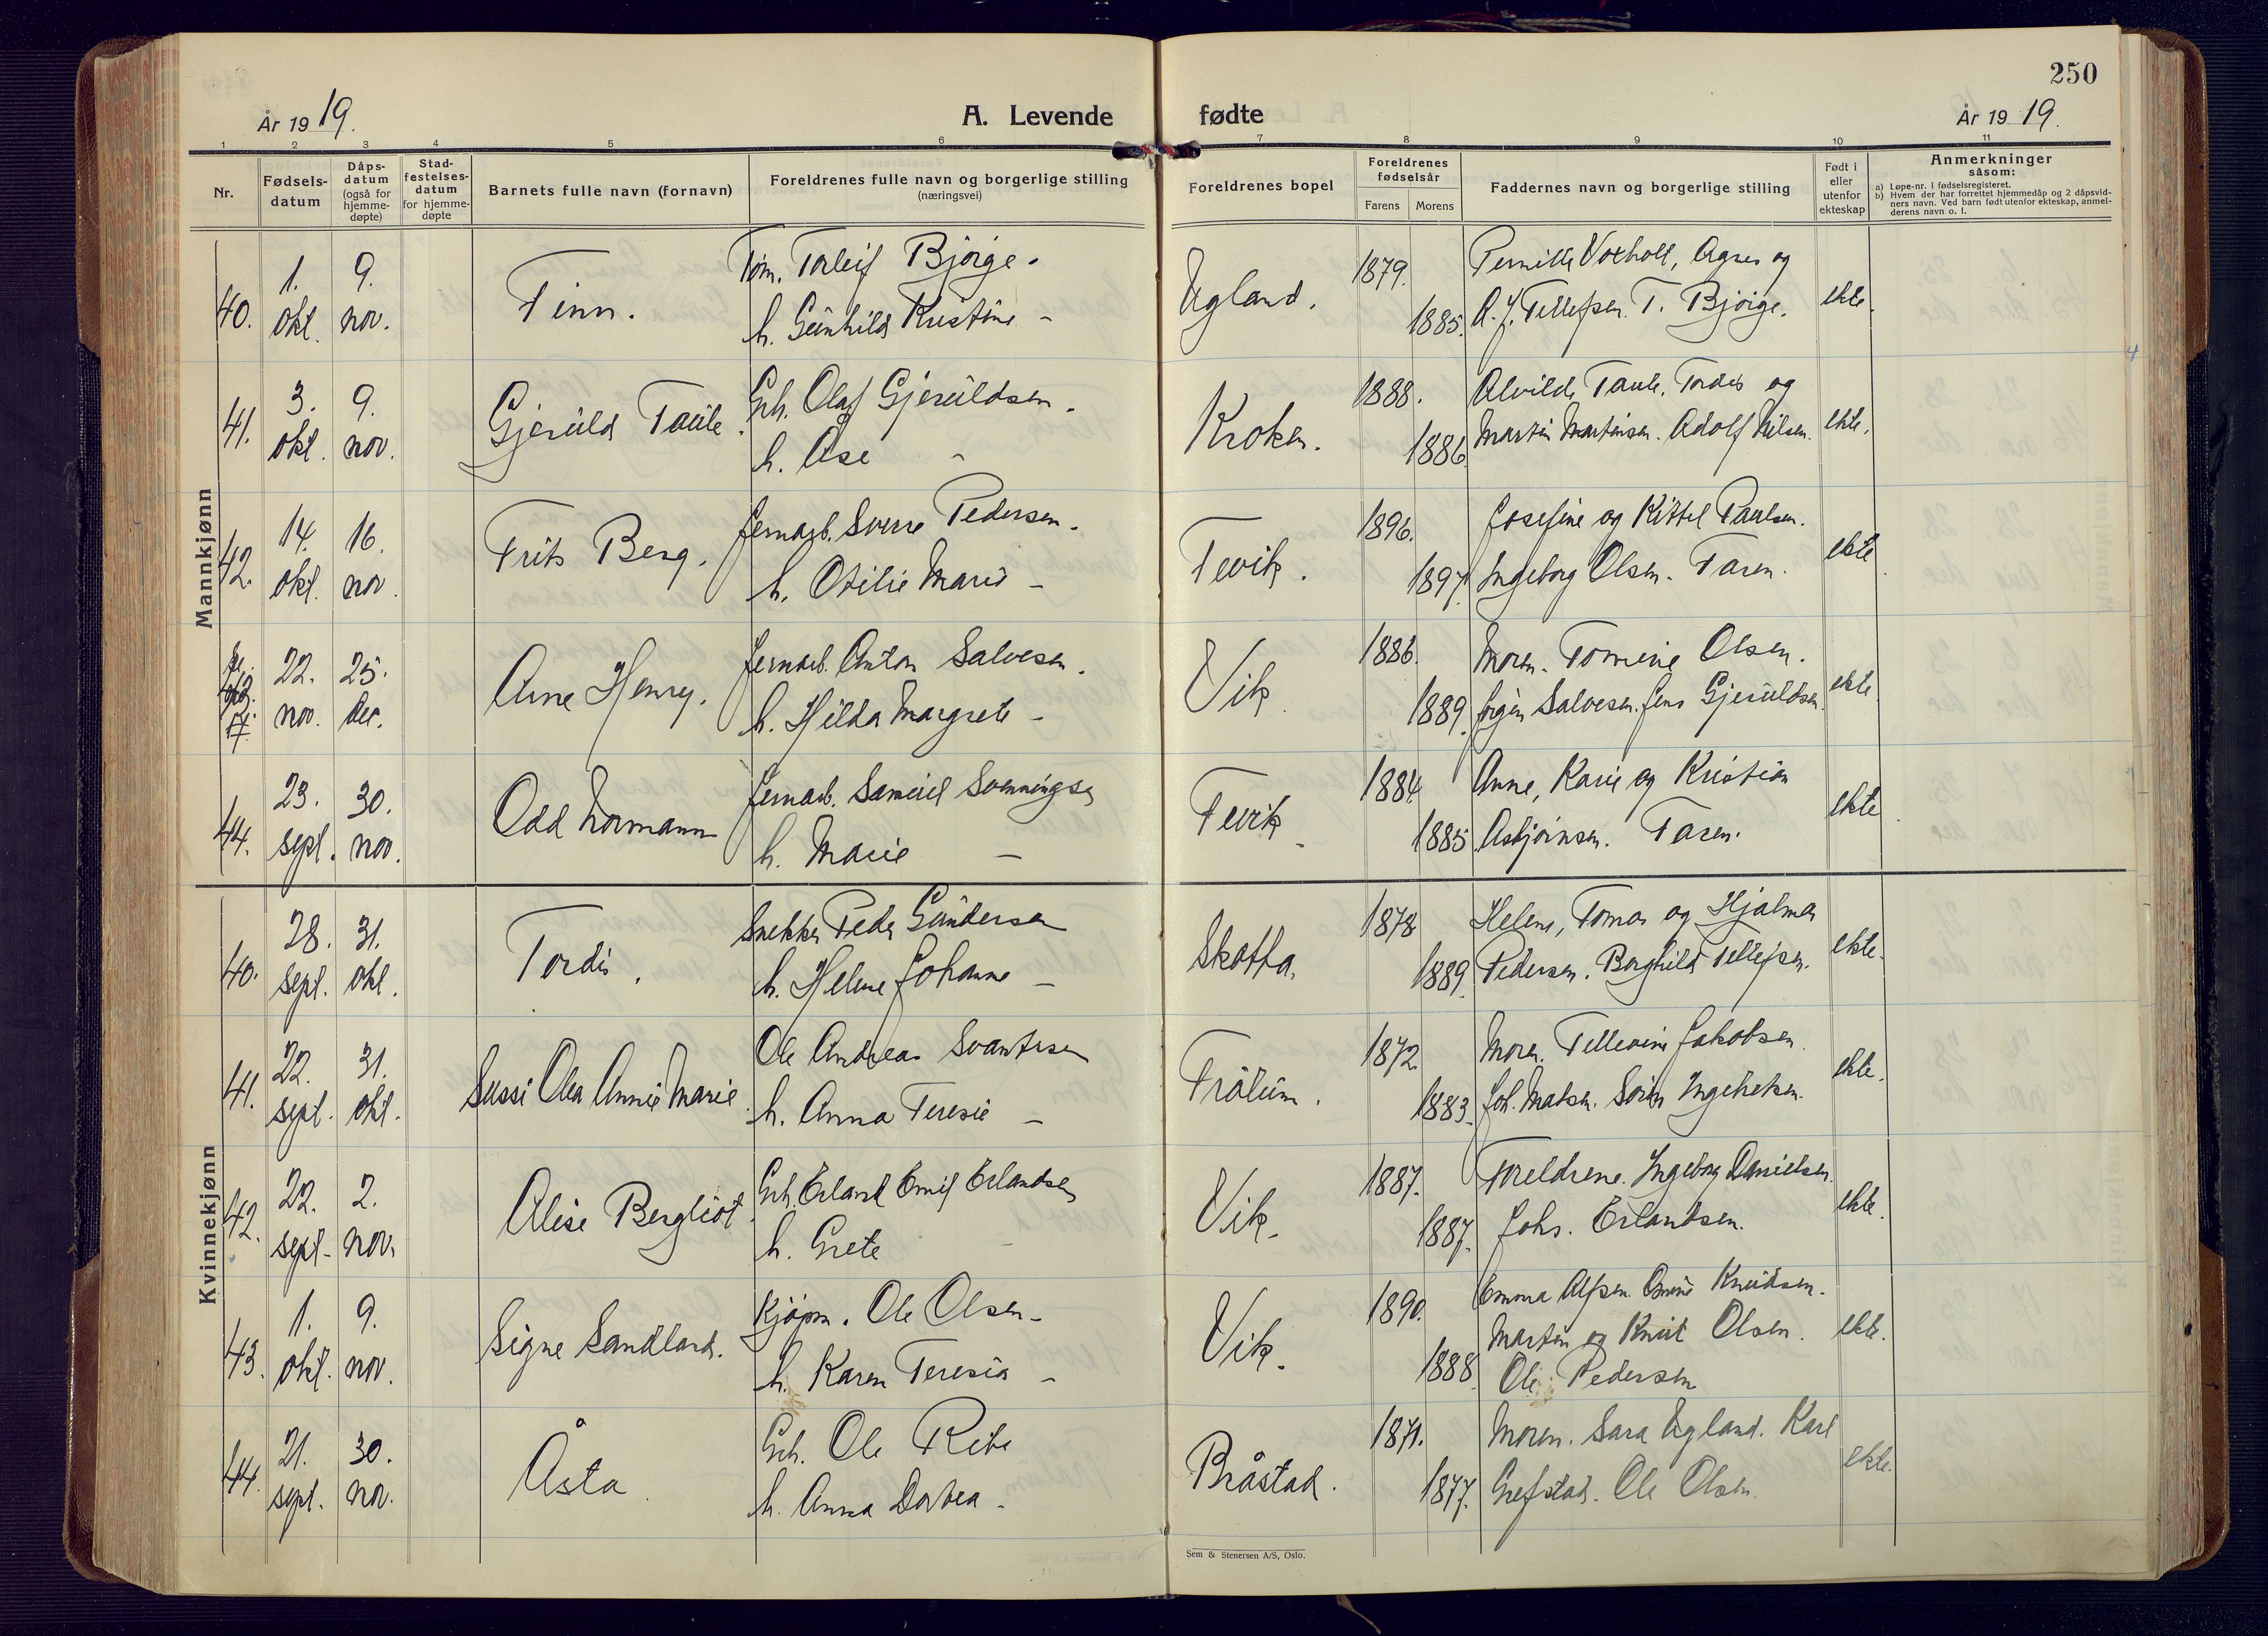 250
År 1919.
A. Levende fødte
År 1919.
1 2 3 4 5 6 7 8 9 10 11
Nr.
Fødsels-
datum
Dåps-
datum
(også for
hjemme-
døpte)
Stad-
festelses-
datum
for hjemme-
døpte
Barnets fulle navn (fornavn)
Foreldrenes fulle navn og borgerlige stilling
(næringsvei)
Foreldrenes bopel
Foreldrenes
fødselsår
Farens Morens
Faddernes navn og borgerlige stilling
Født i
eller
utenfor
ekteskap
Anmerkninger
såsom:
a) Løpe-nr. i fødselsregisteret.
b) Hvem der har forrettet hjemmedåp og 2 dåpsvid-
ners navn. Ved barn født utenfor ekteskap, anmel-
derens navn o. l.
Mannkjønn
40. 1. okt. 9. nov. Finn. Tøm. Torleif Bjørge.
h. Gunhild Kristine -
Ugland. 1879. 1885. Pernille Voxholt, Agnes og
A. J. Tellefsen. T. Bjørge. ekte.
41. 3. okt. 9. nov. Gjeruld Taule. Grb. Olaf Gjeruldsen.
h. Åse -
Kroken. 1888. 1886. Alvilde Taule, Tordis og
Martin Martinsen. Adolf Nilsen. ekte.
42. 14. okt. 16. nov. Frits Berg. Jernarb. Sverre Pedersen.
h. Otilie Marie -
Fevik. 1896. 1897. Josefine og Kittel Paulsen.
Ingeborg Olsen. Faren. ekte
22. nov. 25. dec. Arne Henry. Jernarb. Anton Salvesen.
h. Hilda Margrete -
Vik. 1886. 1889. Moren. Tomine Olsen.
Jørgen Salvesen. Jens Gjeruldsen. ekte.
44. 23. sept. 30. nov. Odd Normann Jernarb. Samuel Svenningsen
h. Marie -
Fevik. 1884. 1885. Anne, Karie og Kristian
Asbjørnsen. Faren. ekte.
Kvinnekjønn
40. 28. sept. 31. okt. Tordis. Snekker Peder Gundersen
h. Helene Johanne -
Skotta. 1878. 1889. Helene, Tomas og Hjalmar
Pedersen. Borghild Tellefsen. ekte.
41. 22. sept. 31. okt. Sussi Olea Annie Marie. Ole Andreas Svantesen
h. Anna Teresie -
Frølum. 1872. 1883. Moren. Tellevine Jakobsen.
Joh. Madsen. Søren Ingebretsen. ekte.
42. 22. sept. 2. nov. Alise Bergliot Grb. Erland Emil Erlandsen
h. Grete -
Vik. 1887. 1887. Foreldrene. Ingeborg Danielsen.
Johs. Erlandsen. ekte.
43. 1. okt. 9. nov. Signe Sandland. Kjøpm. Ole Olsen -
h. Karen Teresia -
Vik. 1890. 1888. Emma Alfsen. Knudsen.
Martin og Knut Olsen.
Ole Pedersen ekte.
44. 21. sept. 30. nov. Åsta Grb. Ole Ribe
h. Anna Dortea -
Bråstad. 1871. 1877. Moren. Sara Ugland. Karl
Grefstad. Ole Olsen. ekte.
Sem & Stenersen A/S, Oslo.